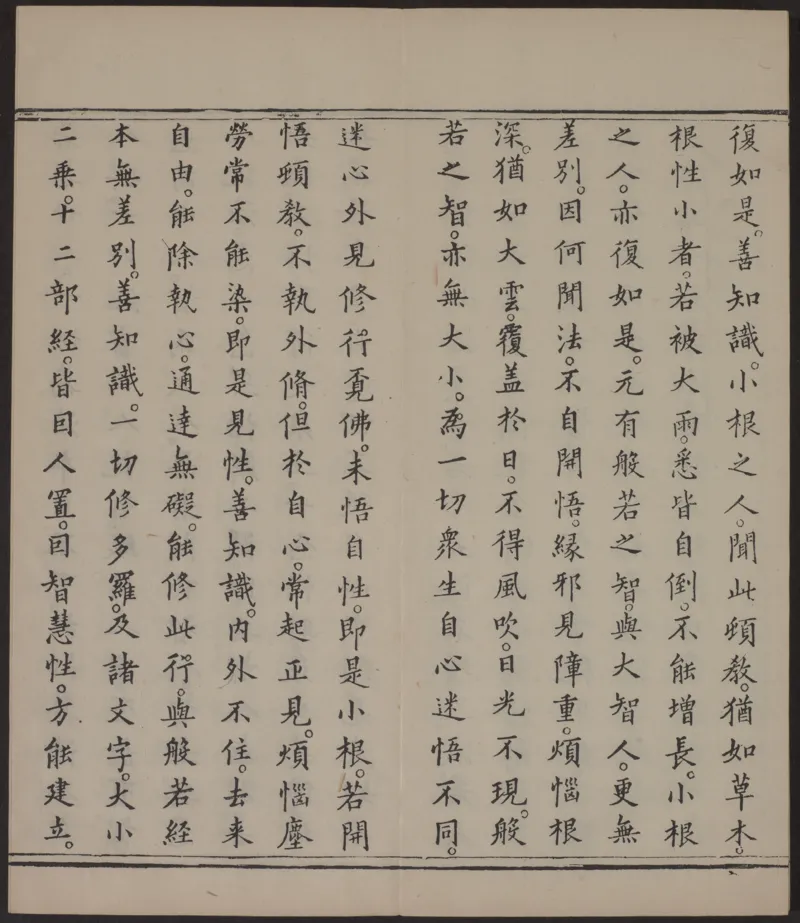 復如是。善知識。小根之人。聞此頓教。猶如草木。
根性小者。若被大雨。悉皆自倒。不能增長。小根
之人。亦復如是。元有般若之智。與大智人。更無
差別。因何聞法。不自開悟。緣邪見障重。煩惱根
深。猶如大雲。覆盖於日。不得風吹。日光不現。般
若之智。亦無大小。為一切眾生自心迷悟不同。
迷心外見修行覓佛。未悟自性。即是小根。若開
悟頓教。不執外脩。但於自心。常起正見。煩惱塵
勞常不能染。即是見性。善知識。内外不住。去来
自由。能除執心。通達無礙。能修此行。與般若經
本無差別。善知識。一切修多羅。及諸文字。大小
二乗。十二部經。皆因人置。因智慧性。方能建立。